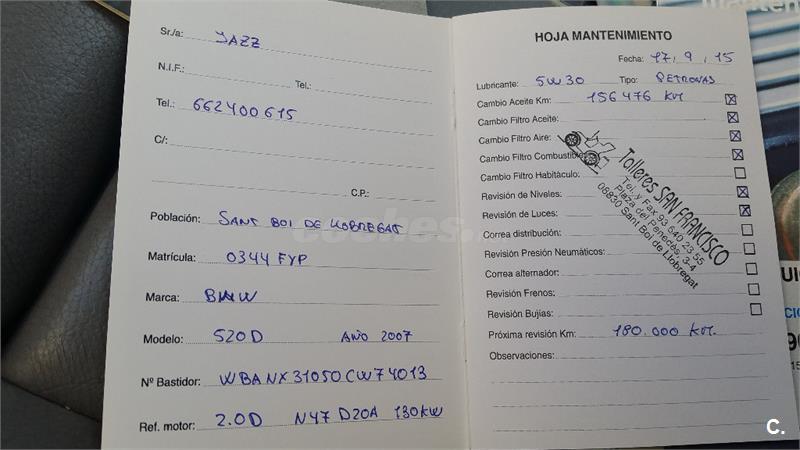 Sr./a: JAZZ
N.I.F.: Tel.:
Tel.: 662400615
C/:
C.P.:
Población: SANT BOI DE LLOBREGAT
Matrícula: 0344 FYP
Marca: BMW
Modelo: 520D AÑO 2007
Nº Bastidor: WBANX31050CW74013
Ref. motor: 2.0D N47 D20A 130KW
HOJA MANTENIMIENTO
Fecha: 17, 9, 15
Lubricante: 5W30 Tipo: PETRONAS
Cambio Aceite Km: 156476 KM
Cambio Filtro Aceite:
Cambio Filtro Aire:
Cambio Filtro Combustible
Cambio Filtro Habitáculo:
Revisión de Niveles:
Revisión de Luces:
Correa distribución:
Revisión Presión Neumáticos:
Correa alternador:
Revisión Frenos:
Revisión Bujías:
Próxima revisión Km: 180.000 KM.
Observaciones:
Talleres SAN FRANCISCO
Tel. y Fax 93 640 23 55
Plaza del Penedès, 3-4
08830 Sant Boi de Llobregat
coches.
C.